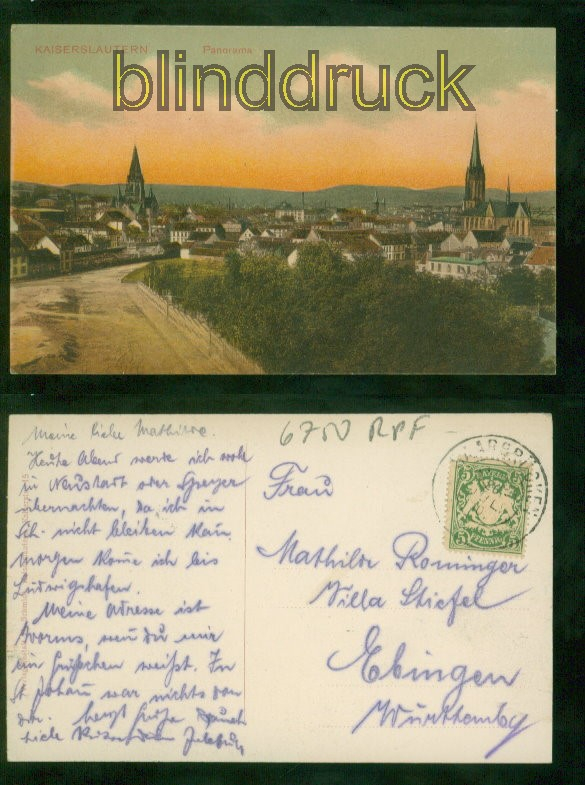 KAISERSLAUTERN Panorama
blinddruck
Meine liebe Mathilde.
6750 RPF
Heute Abend werde ich wohl
in Neustadt oder Speyer
übernachten, da ich in
nicht bleiben kann.
Morgen komme ich bis
Ludwigshafen.
Meine Adresse ist
Worms, wenn du mir
ein Grüßchen weißt. In
St Johann war nichts von
dir. herzl Grüße
viele
Frau
Mathilde Rominger
Villa Stiefel
Ebingen
Württembg
BAYERN
5 5
PFENNIG